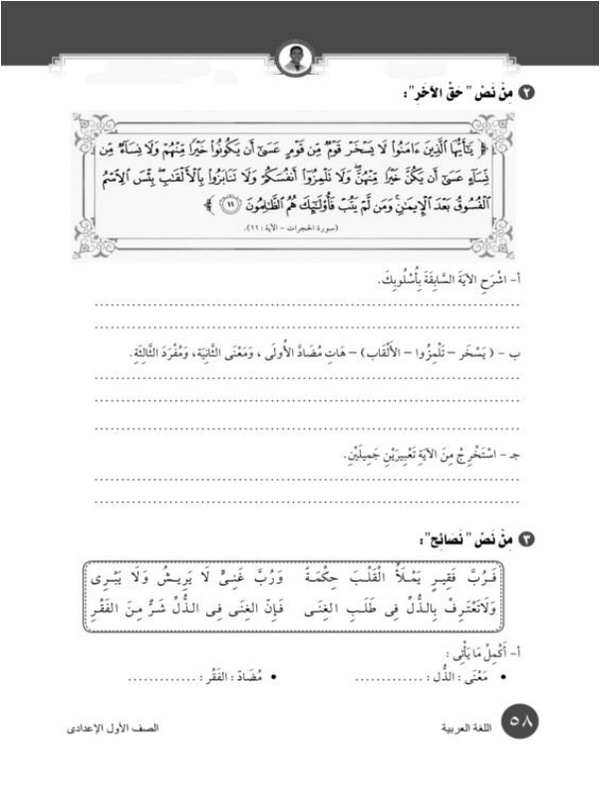 ٢ مِنْ نَصْ " حَقْ الآخَرِ":
﴿ يَٰٓأَيُّهَا ٱلَّذِينَ ءَامَنُوا۟ لَا يَسْخَرْ قَوْمٌ مِّن قَوْمٍ عَسَىٰٓ أَن يَكُونُوا۟ خَيْرًا مِّنْهُمْ وَلَا نِسَآءٌ مِّن
نِّسَآءٍ عَسَىٰٓ أَن يَكُنَّ خَيْرًا مِّنْهُنَّ ۖ وَلَا تَلْمِزُوٓا۟ أَنفُسَكُمْ وَلَا تَنَابَزُوا۟ بِٱلْأَلْقَٰبِ ۖ بِئْسَ ٱلِٱسْمُ
ٱلْفُسُوقُ بَعْدَ ٱلْإِيمَٰنِ ۚ وَمَن لَّمْ يَتُبْ فَأُو۟لَٰٓئِكَ هُمُ ٱلظَّٰلِمُونَ ﴿١١﴾ ﴾
(سورة الحجرات - الآية : ١١).
أ- اشْرَحِ الآيَةَ السَّابِقَةَ بِأُسْلُوبِكَ.
ب - ( يَسْخَر – تَلْمِزُوا – الأَلْقَاب) – هَاتِ مُضَادَّ الأُولَى ، وَمَعْنَى الثَّانِيَة، وَمُفْرَدَ الثَّالِثَةِ.
جـ - اسْتَخْرِجْ مِنَ الآيَةِ تَعْبِيرَيْنِ جَمِيلَيْنِ.
٣ مِنْ نَصْ " نَصَائِح":
فَرُبَّ فَقِيرٍ يَمْلَأُ الْقَلْبَ حِكْمَةً وَرُبَّ غَنِيٍّ لَا يَرِيشُ وَلَا يَبْرِى
وَلَاتَعْتَرِفْ بِالذُّلِّ فِى طَلَبِ الغِنَى فَإِنَّ الغِنَى فِى الذُّلِّ شَرٌّ مِنَ الفَقْرِ
أ- أَكْمِلْ مَا يَأْتِى :
• مَعْنَى : الذُّل : ............. • مُضَادّ : الفَقْر : .............
٥٨ اللغة العربية الصف الأول الإعدادى